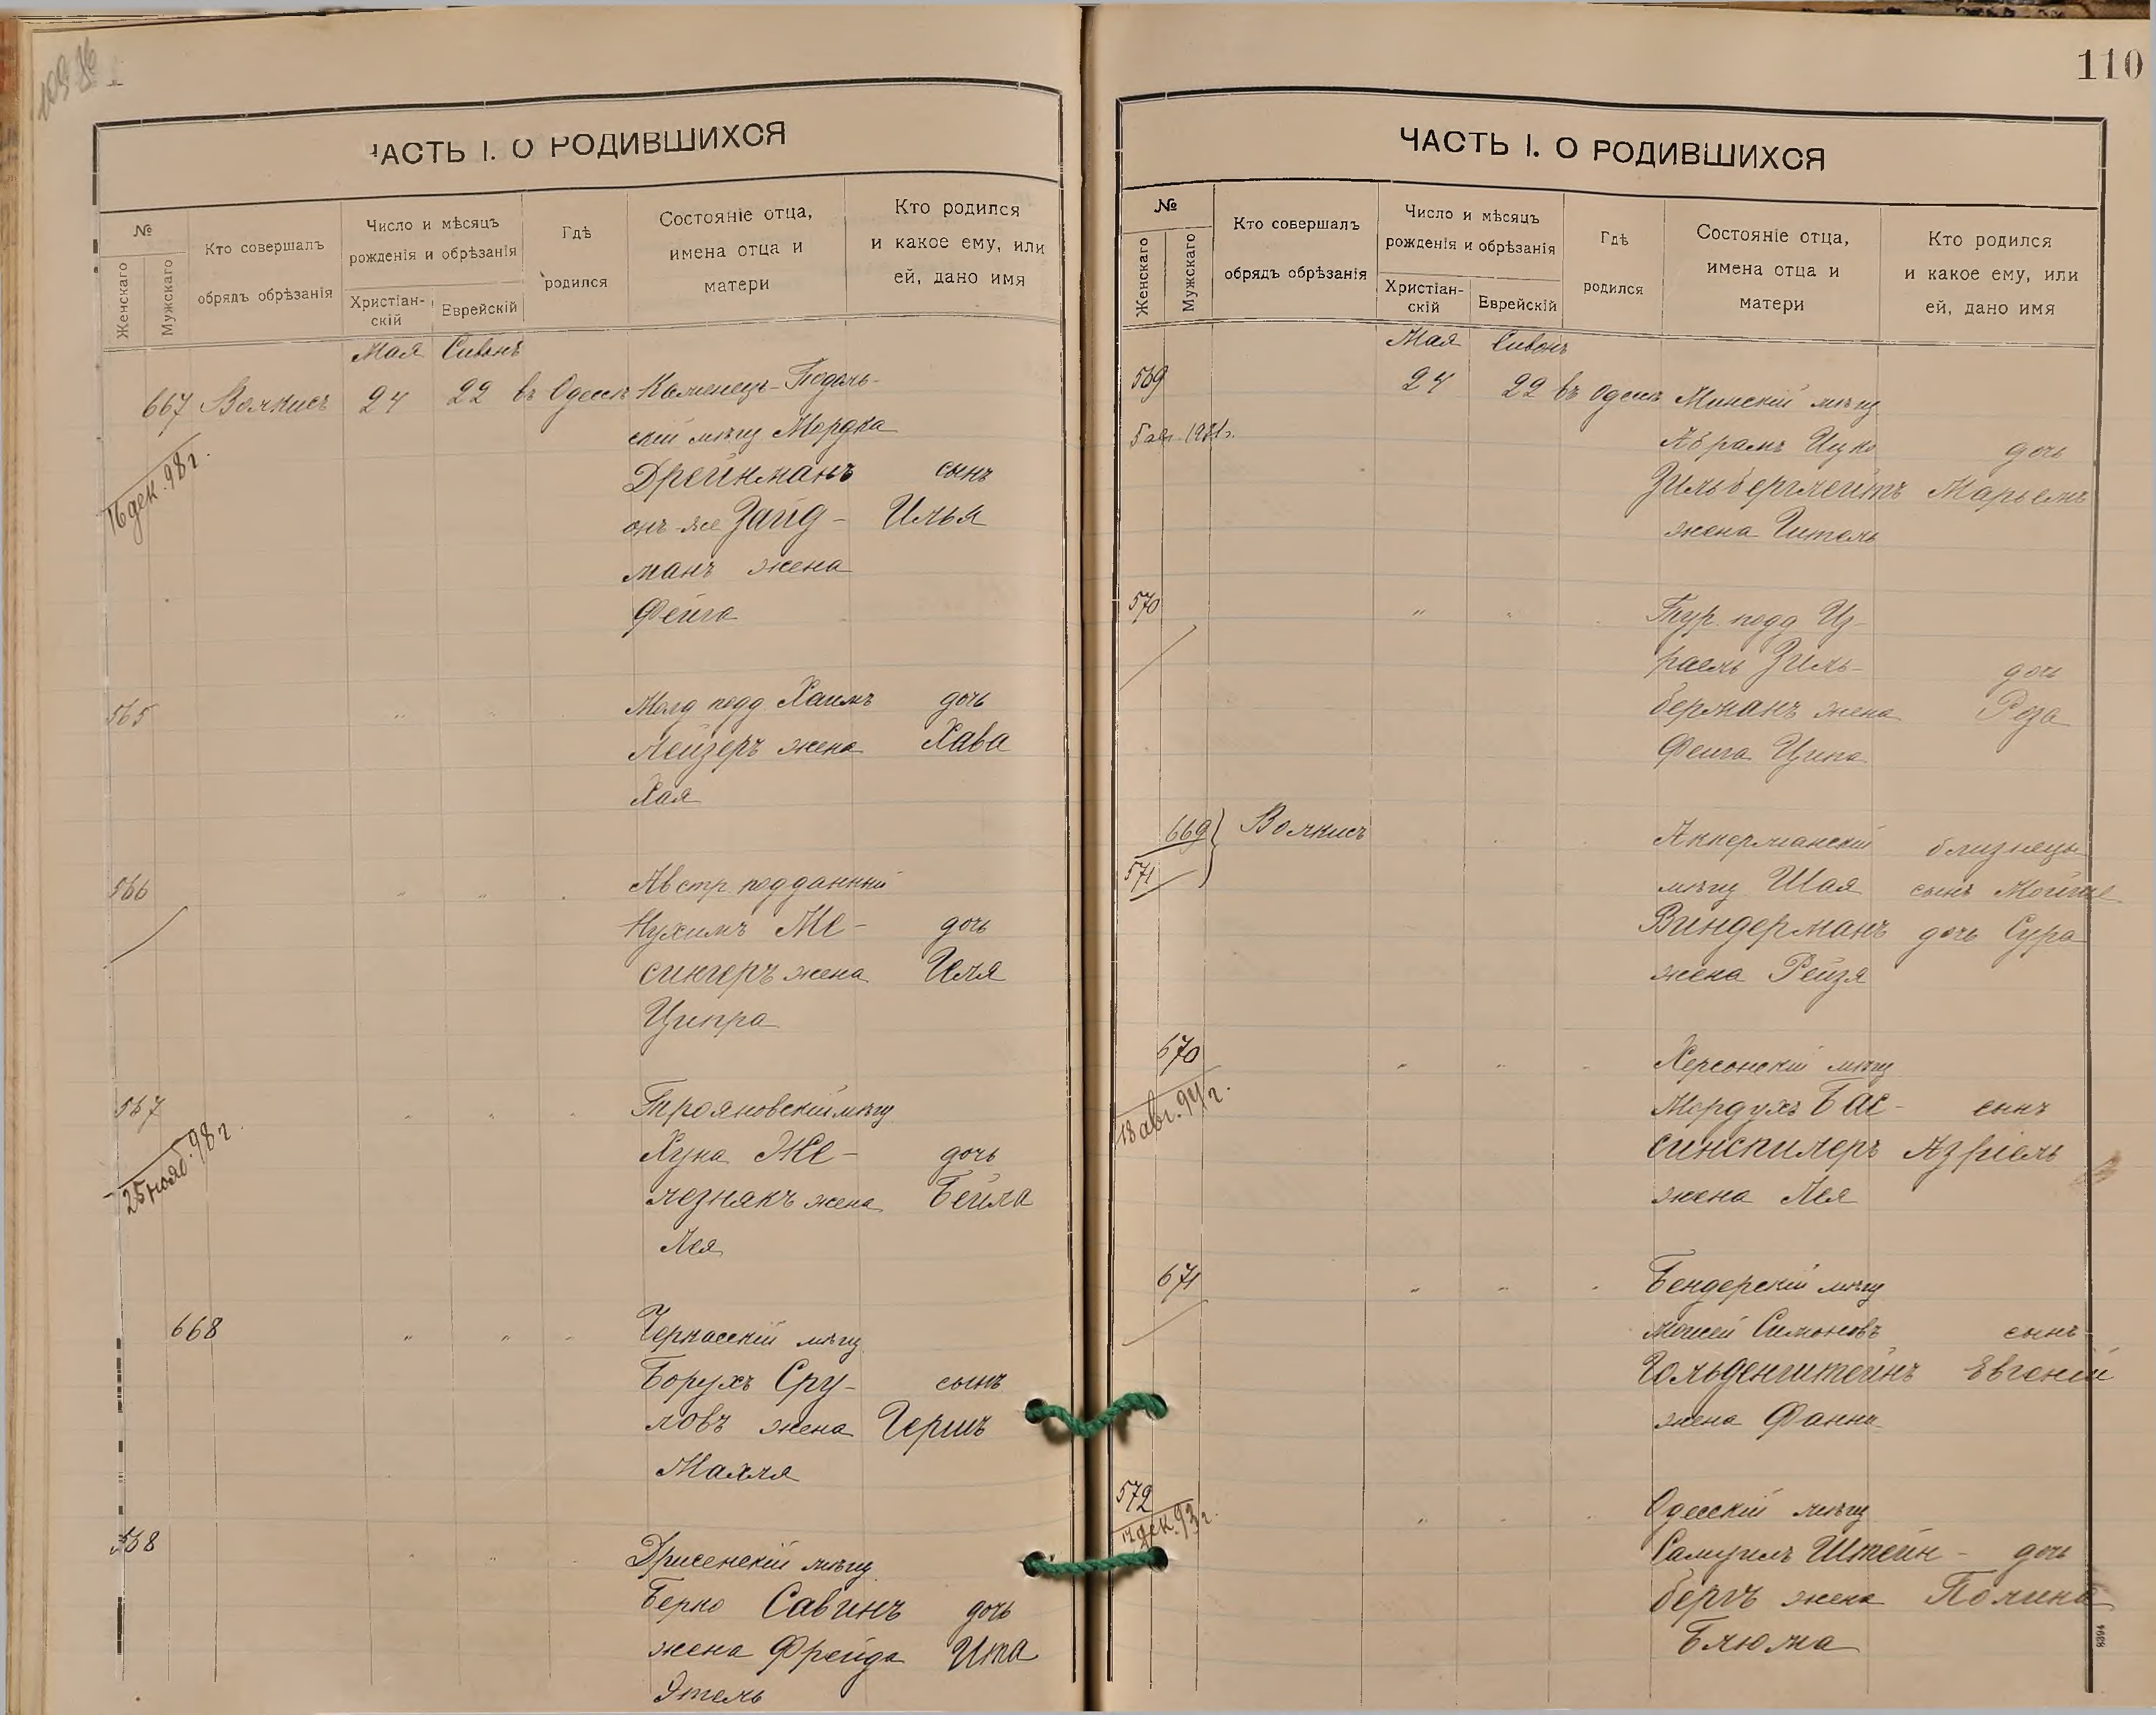 ЧАСТЬ I. О РОДИВШИХСЯ
№
Женскаго
Мужскаго
Кто совершалъ
обрядъ обрѣзанія
Число и мѣсяцъ
рожденія и обрѣзанія
Христіан-
скій
Еврейскій
Гдѣ
родился
Состояніе отца,
имена отца и
матери
Кто родился
и какое ему, или
ей, дано имя
Мая Сивонъ
667 24 22 въ Одессѣ Каменецъ-Подоль-
скій мѣщ Мордка
Дрейнманъ сынъ
16 дек. 98 г.
онъ-же Зайд- Илья
манъ жена
Фейга
565 " " Молд подд Хаимъ дочь
Лейзеръ жена Хава
Хая
566 " " " Австр подданный
Нухимъ Ме- дочь
сингеръ жена
Ципра
567 " " " Трояновскій мѣщ
25 нояб. 98 г.
Хуна Же- дочь
лезнякъ жена Бейла
Лея
668 " " " Черкасскій мѣщ
Борухъ Сру- сынъ
ловъ жена Гершъ
Махля
568 " " Дрисенскій мѣщ
Берко Савинъ дочь
жена Фрейда Ита
Этель
110
ЧАСТЬ I. О РОДИВШИХСЯ
№
Женскаго
Мужскаго
Кто совершалъ
обрядъ обрѣзанія
Число и мѣсяцъ
рожденія и обрѣзанія
Христіан-
скій
Еврейскій
Гдѣ
родился
Состояніе отца,
имена отца и
матери
Кто родился
и какое ему, или
ей, дано имя
Мая Сивонъ
569 24 22 въ Одессѣ Минскій мѣщ
Абрамъ Ицко дочь
Зильберглейтъ Марьемъ
жена Гитель
570 " " " Тур. подд Из-
раель Зиль- дочь
берманъ жена Роза
Фейга Ципа
669 Аккерманскій близнецы
571 мѣщ Шая сынъ Мойше
Виндерманъ дочь Сура
жена Рейзя
670 " " " Херсонскій мѣщ
18 авг. 94 г.
Мордухъ Бас- сынъ
синспилеръ Азріель
жена Лея
671 " " " Бендерскій мѣщ
Мошей Симоновъ сынъ
Гольденштейнъ Евгеній
жена Фанни
572 " " " Одесскій мѣщ
Самуилъ Штейн- дочь
бергъ жена Полина
Блюма
9394